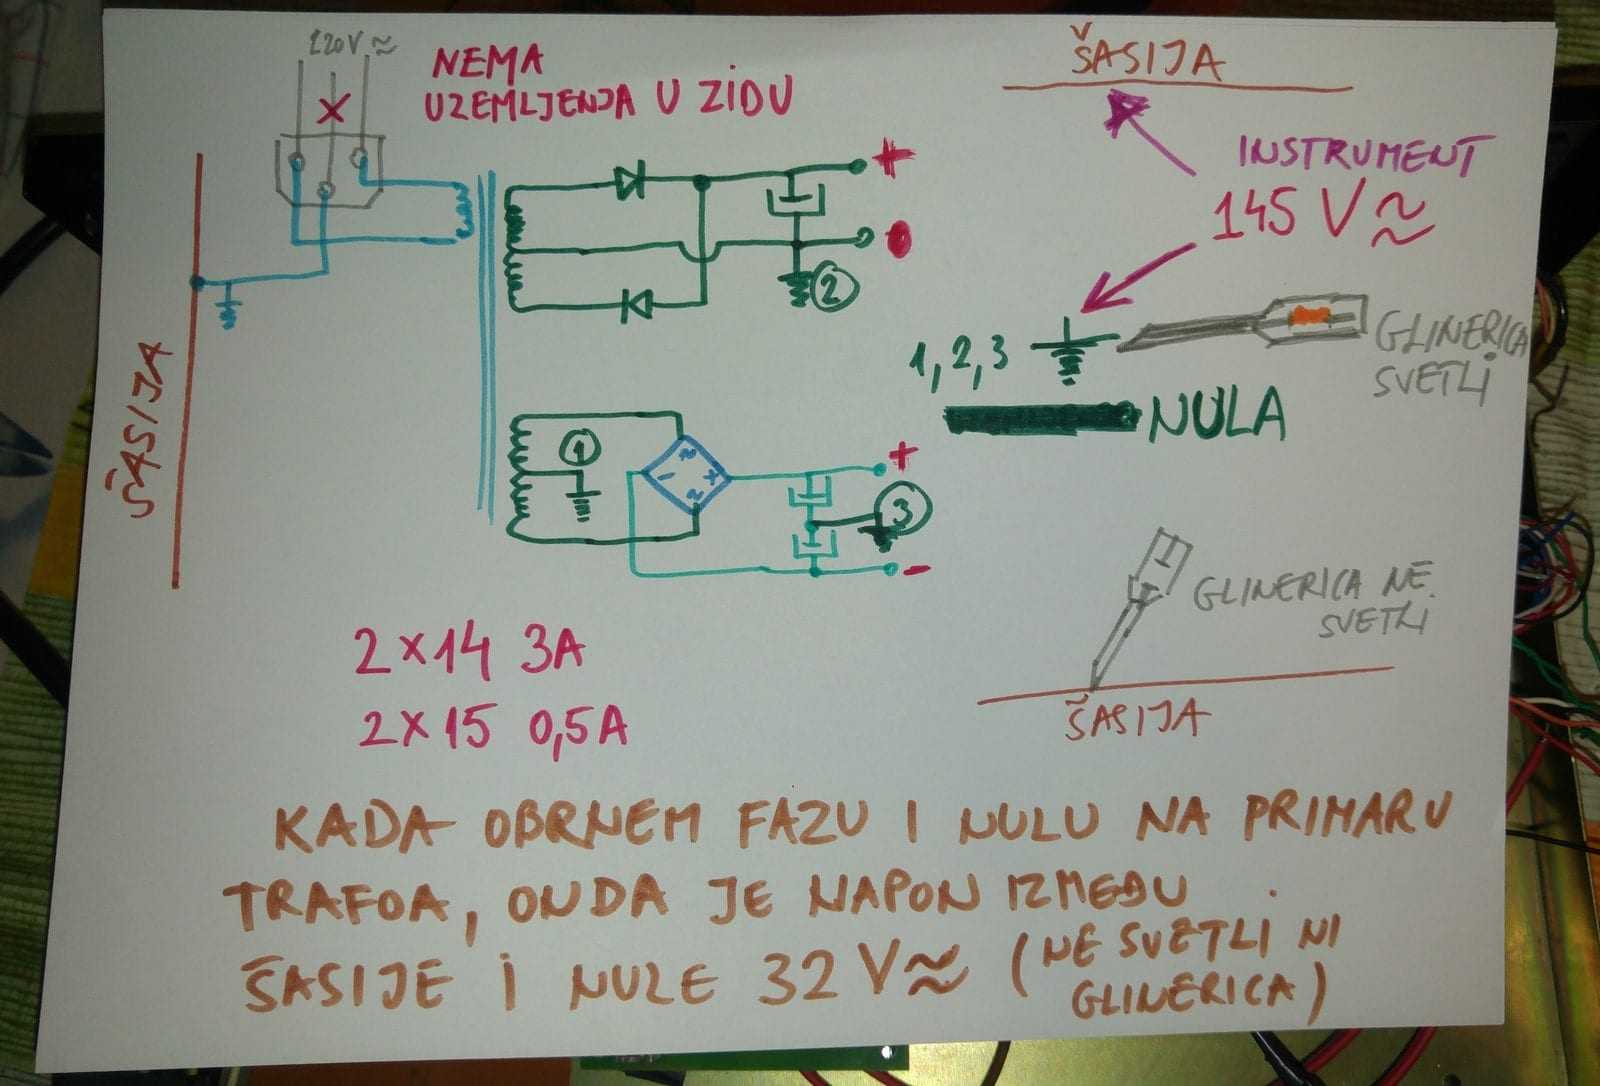 220V ≈
NEMA
UZEMLJENJA U ZIDU
X
ŠASIJA
INSTRUMENT
145 V ≈
+
0
2
ŠASIJA
1, 2, 3
GLINERICA
SVETLI
NULA
1
~
- +
~
+
3
-
GLINERICA NE
SVETLI
ŠASIJA
2×14 3A
2×15 0,5A
KADA OBRNEM FAZU I NULU NA PRIMARU
TRAFOA, ONDA JE NAPON IZMEĐU
ŠASIJE I NULE 32 V≈ (NE SVETLI NI
GLINERICA)